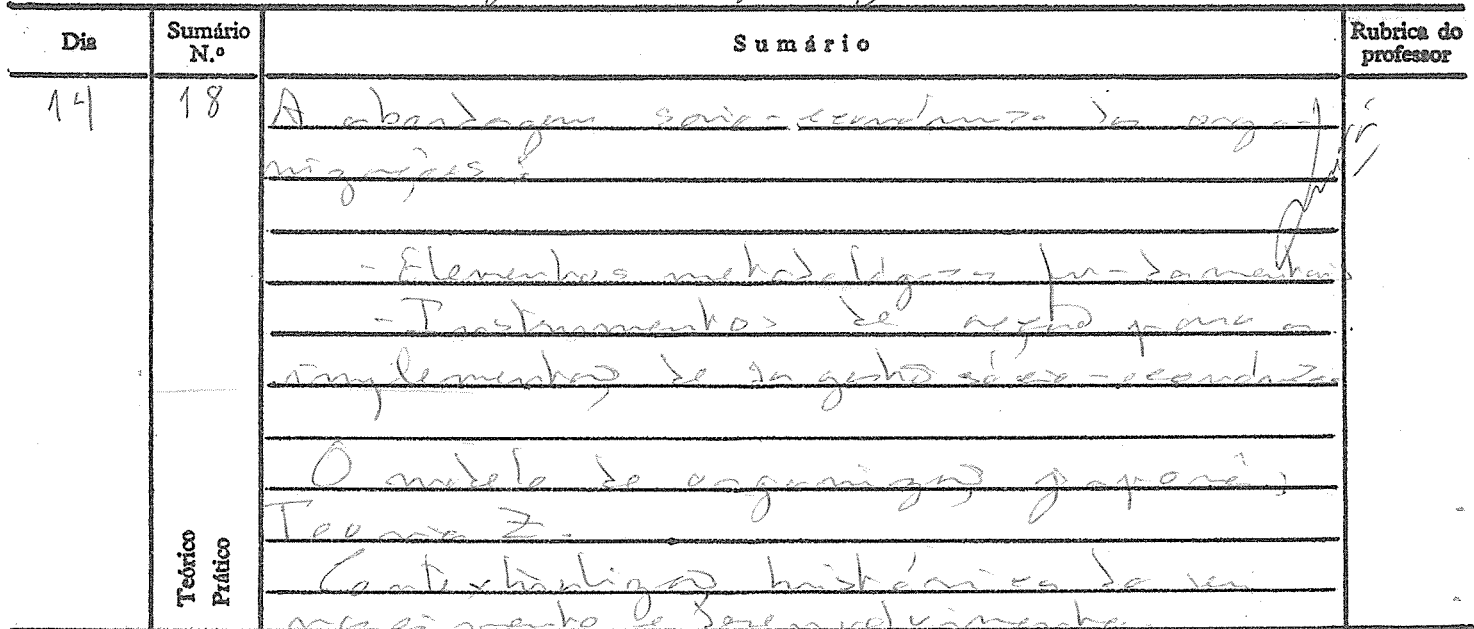 Dia
Sumário N.º
Sumário
Rubrica do professor
14
18
A abordagem sócio-económica das orga-
nizações:
- Elementos metodológicos fundamentais
- Instrumentos de acção para a
implementação de da gestão sócio-económica
O modelo de organização japonês;
Teoria Z.
Contextualização histórica do seu
nascimento e desenvolvimento.
Teórico
Prático